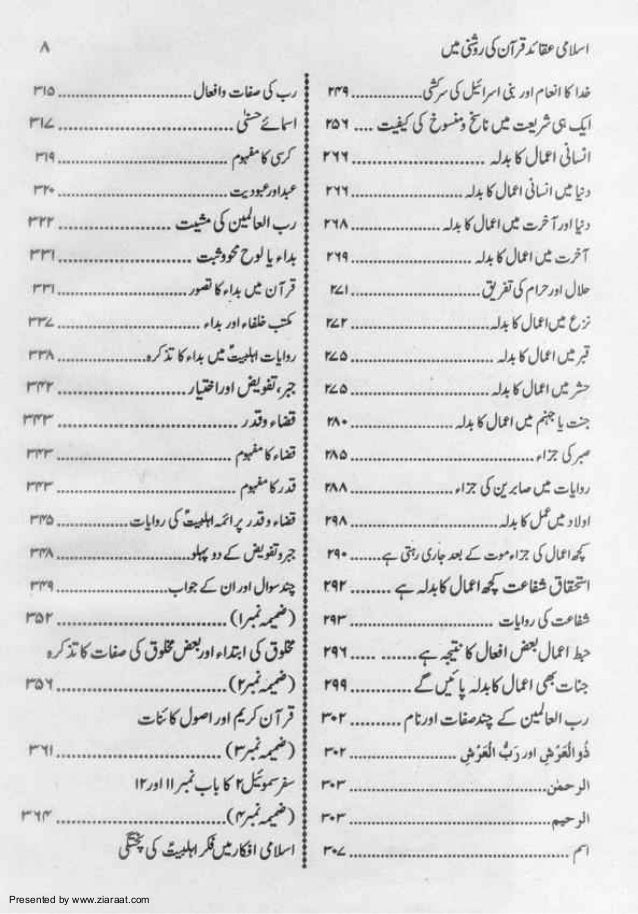 اسلامی عقائد قرآن کی روشنی میں ۸
خدا کا انعام اور بنی اسرائیل کی سرکشی ................ ۲۴۹
ایک ہی شریعت میں ناسخ و منسوخ کی کیفیت .... ۲۵۶
انسانی اعمال کا بدلہ ........................ ۲۶۶
دنیا میں انسانی اعمال کا بدلہ ........................ ۲۶۶
دنیا اور آخرت میں اعمال کا بدلہ .................... ۲۶۸
آخرت میں اعمال کا بدلہ ........................ ۲۶۹
حلال اور حرام کی تفریق ........................ ۲۷۱
نزع میں اعمال کا بدلہ ........................ ۲۷۲
قبر میں اعمال کا بدلہ ........................ ۲۷۵
حشر میں اعمال کا بدلہ ........................ ۲۷۵
جنت یا جہنم میں اعمال کا بدلہ .................... ۲۸۰
صبر کی جزاء ........................ ۲۸۵
روایات میں صابرین کی جزاء .................... ۲۸۸
اولاد میں عمل کا بدلہ ........................ ۲۹۸
کچھ اعمال کی جزاء موت کے بعد جاری رہتی ہے ....... ۲۹۰
استحقاق شفاعت کچھ اعمال کا بدلہ ہے ........ ۲۹۲
شفاعت کی روایات ........................ ۲۹۳
حبط اعمال بعض افعال کا نتیجہ ہے ............ ۲۹۶
جنات بھی اعمال کا بدلہ پائیں گے ............ ۲۹۹
رب العالمین کے چند صفات اور نام .......... ۳۰۲
ذُو الْعَرْشِ اور رَبُّ الْعَرْشِ .................... ۳۰۲
الرحمٰن ........................ ۳۰۳
الرحیم ........................ ۳۰۳
اسم ........................ ۳۰۷
رب کی صفات و افعال ........................ ۳۱۵
اسمائے حسنیٰ ........................ ۳۱۷
کرسی کا مفہوم ........................ ۳۱۹
عبد اور عبودیت ........................ ۳۲۰
رب العالمین کی مشیت .................... ۳۲۲
بداء یا لوح محو و ثبت .................... ۳۳۱
قرآن میں بداء کا تصور ........................ ۳۳۱
مکتب خلفاء اور بداء ........................ ۳۳۷
روایات اہلبیتؑ میں بداء کا تذکرہ .................... ۳۳۸
جبر، تفویض اور اختیار ........................ ۳۴۲
قضاء و قدر ........................ ۳۴۳
قضاء کا مفہوم ........................ ۳۴۳
قدر کا مفہوم ........................ ۳۴۳
قضاء و قدر پر ائمہ اہلبیتؑ کی روایات ................ ۳۴۵
جبر و تفویض کے دو پہلو ........................ ۳۴۸
چند سوال اور ان کے جواب .................... ۳۴۹
(ضمیمہ نمبر۱) ........................ ۳۵۲
مخلوق کی ابتداء اور بعض مخلوق کی صفات کا تذکرہ
(ضمیمہ نمبر۲) ........................ ۳۵۶
قرآن کریم اور اصول کائنات
(ضمیمہ نمبر۳) ........................ ۳۶۱
سفر سموئیل۲ کا باب نمبر ۱۱ اور ۱۲
(ضمیمہ نمبر۴) ........................ ۳۶۴
اسلامی افکار میں فکر اہلبیتؑ کی پختگی
Presented by www.ziaraat.com